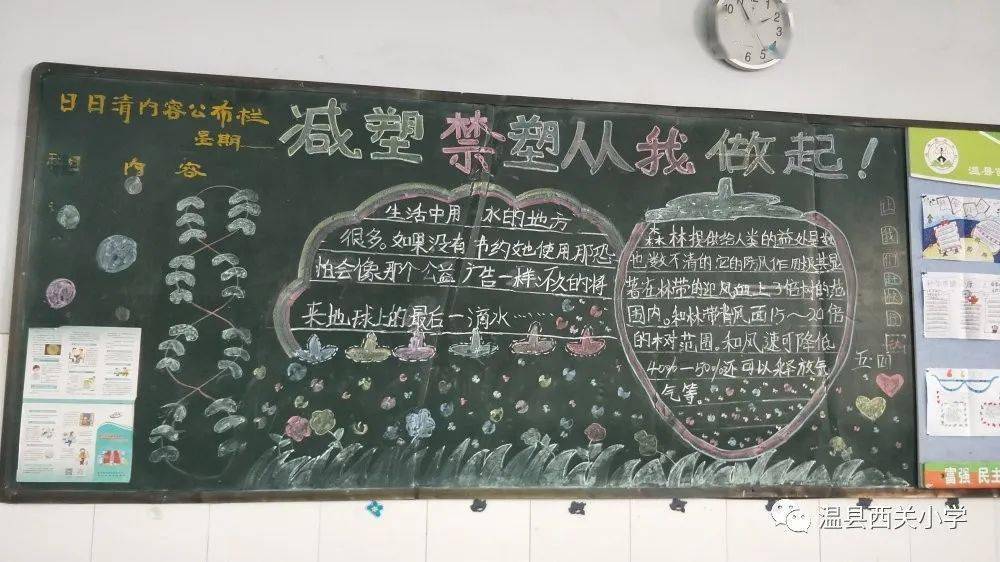 日日清内容公布栏
星期
内 容
减塑禁塑从我做起！
生活中用 水的地方
很多。如果没有 节约地使用那恐
怕会像那个公益广告一样,不久的将
来地球上的最后一滴水……
森林提供给人类的益处是数
也数不清的它的防风作用极其显
著在林带的迎风面上3倍树的范
围内。和林带背风面15～20倍
的树对范围,和风速可降低
40%—50%还可以释放氧
气等。
五·四
温县
富强 民主
温县西关小学